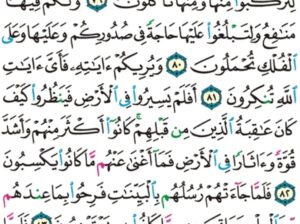 لِتَرْكَبُوا۟ مِنْهَا وَمِنْهَا تَأْكُلُونَ ٧٩ وَلَكُمْ فِيهَا
مَنَٰفِعُ وَلِتَبْلُغُوا۟ عَلَيْهَا حَاجَةً فِى صُدُورِكُمْ وَعَلَيْهَا وَعَلَى
ٱلْفُلْكِ تُحْمَلُونَ ٨٠ وَيُرِيكُمْ ءَايَٰتِهِۦ فَأَىَّ ءَايَٰتِ
ٱللَّهِ تُنكِرُونَ ٨١ أَفَلَمْ يَسِيرُوا۟ فِى ٱلْأَرْضِ فَيَنظُرُوا۟ كَيْفَ
كَانَ عَٰقِبَةُ ٱلَّذِينَ مِن قَبْلِهِمْ كَانُوٓا۟ أَكْثَرَ مِنْهُمْ وَأَشَدَّ
قُوَّةً وَءَاثَارًا فِى ٱلْأَرْضِ فَمَآ أَغْنَىٰ عَنْهُم مَّا كَانُوا۟ يَكْسِبُونَ
٨٢ فَلَمَّا جَآءَتْهُمْ رُسُلُهُم بِٱلْبَيِّنَٰتِ فَرِحُوا۟ بِمَا عِندَهُم